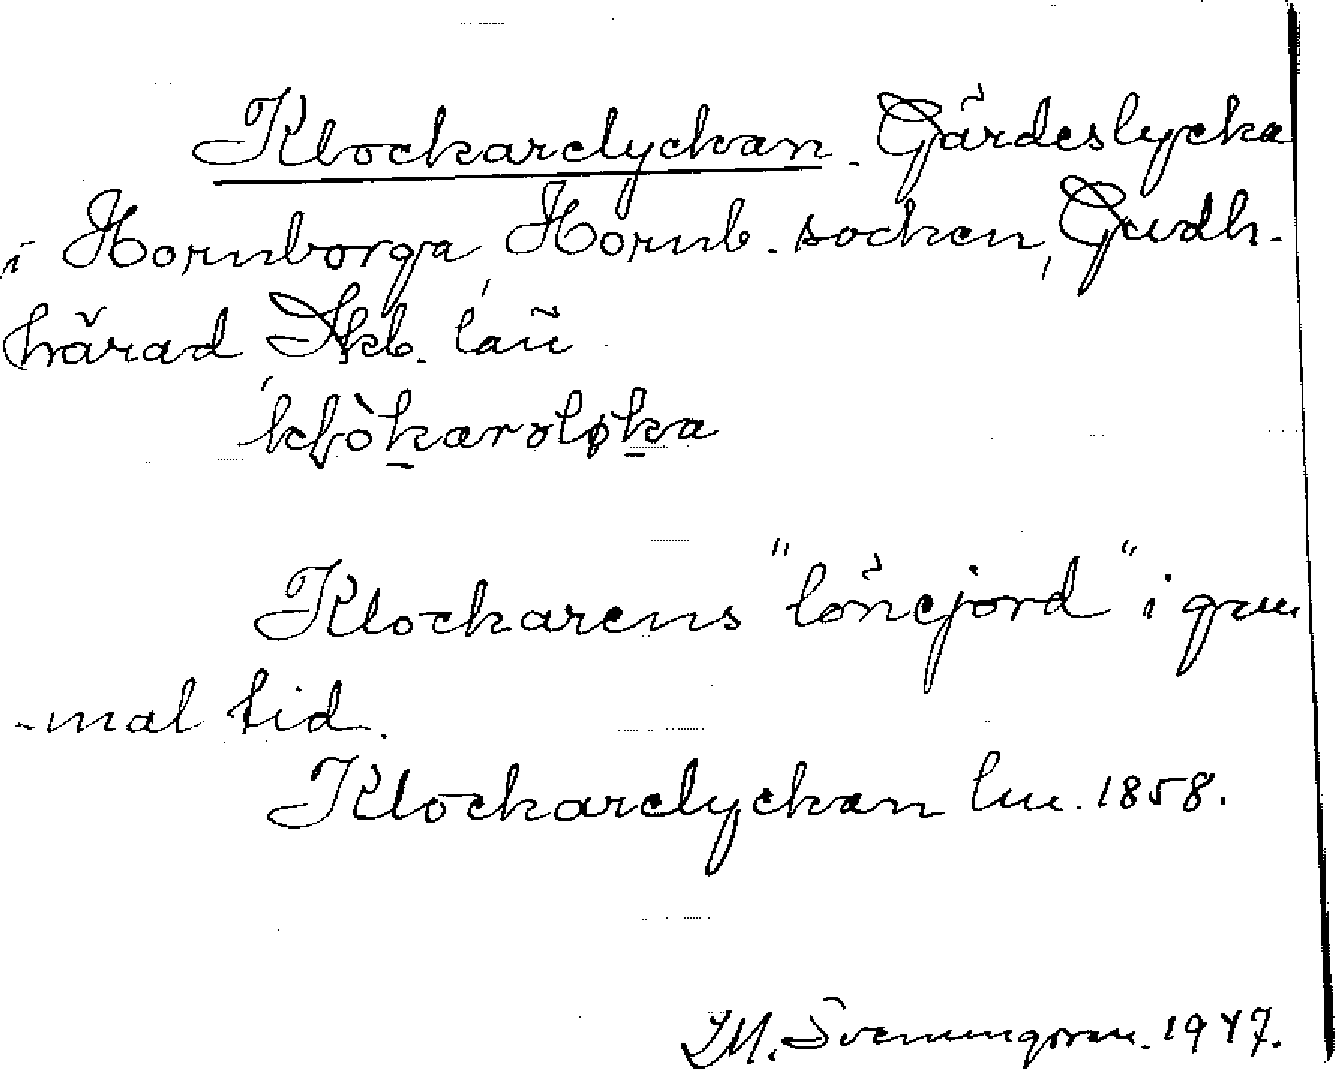 Klockarelyckan. Gärdeslycka
i Hornborga, Hornb. socken, Gudh.
härad, Skb. län
klòkarəløka
Klockarens "lönejord" i gam
-mal tid.
Klockarelyckan lm. 1858.
M. Svenungsson. 1947.